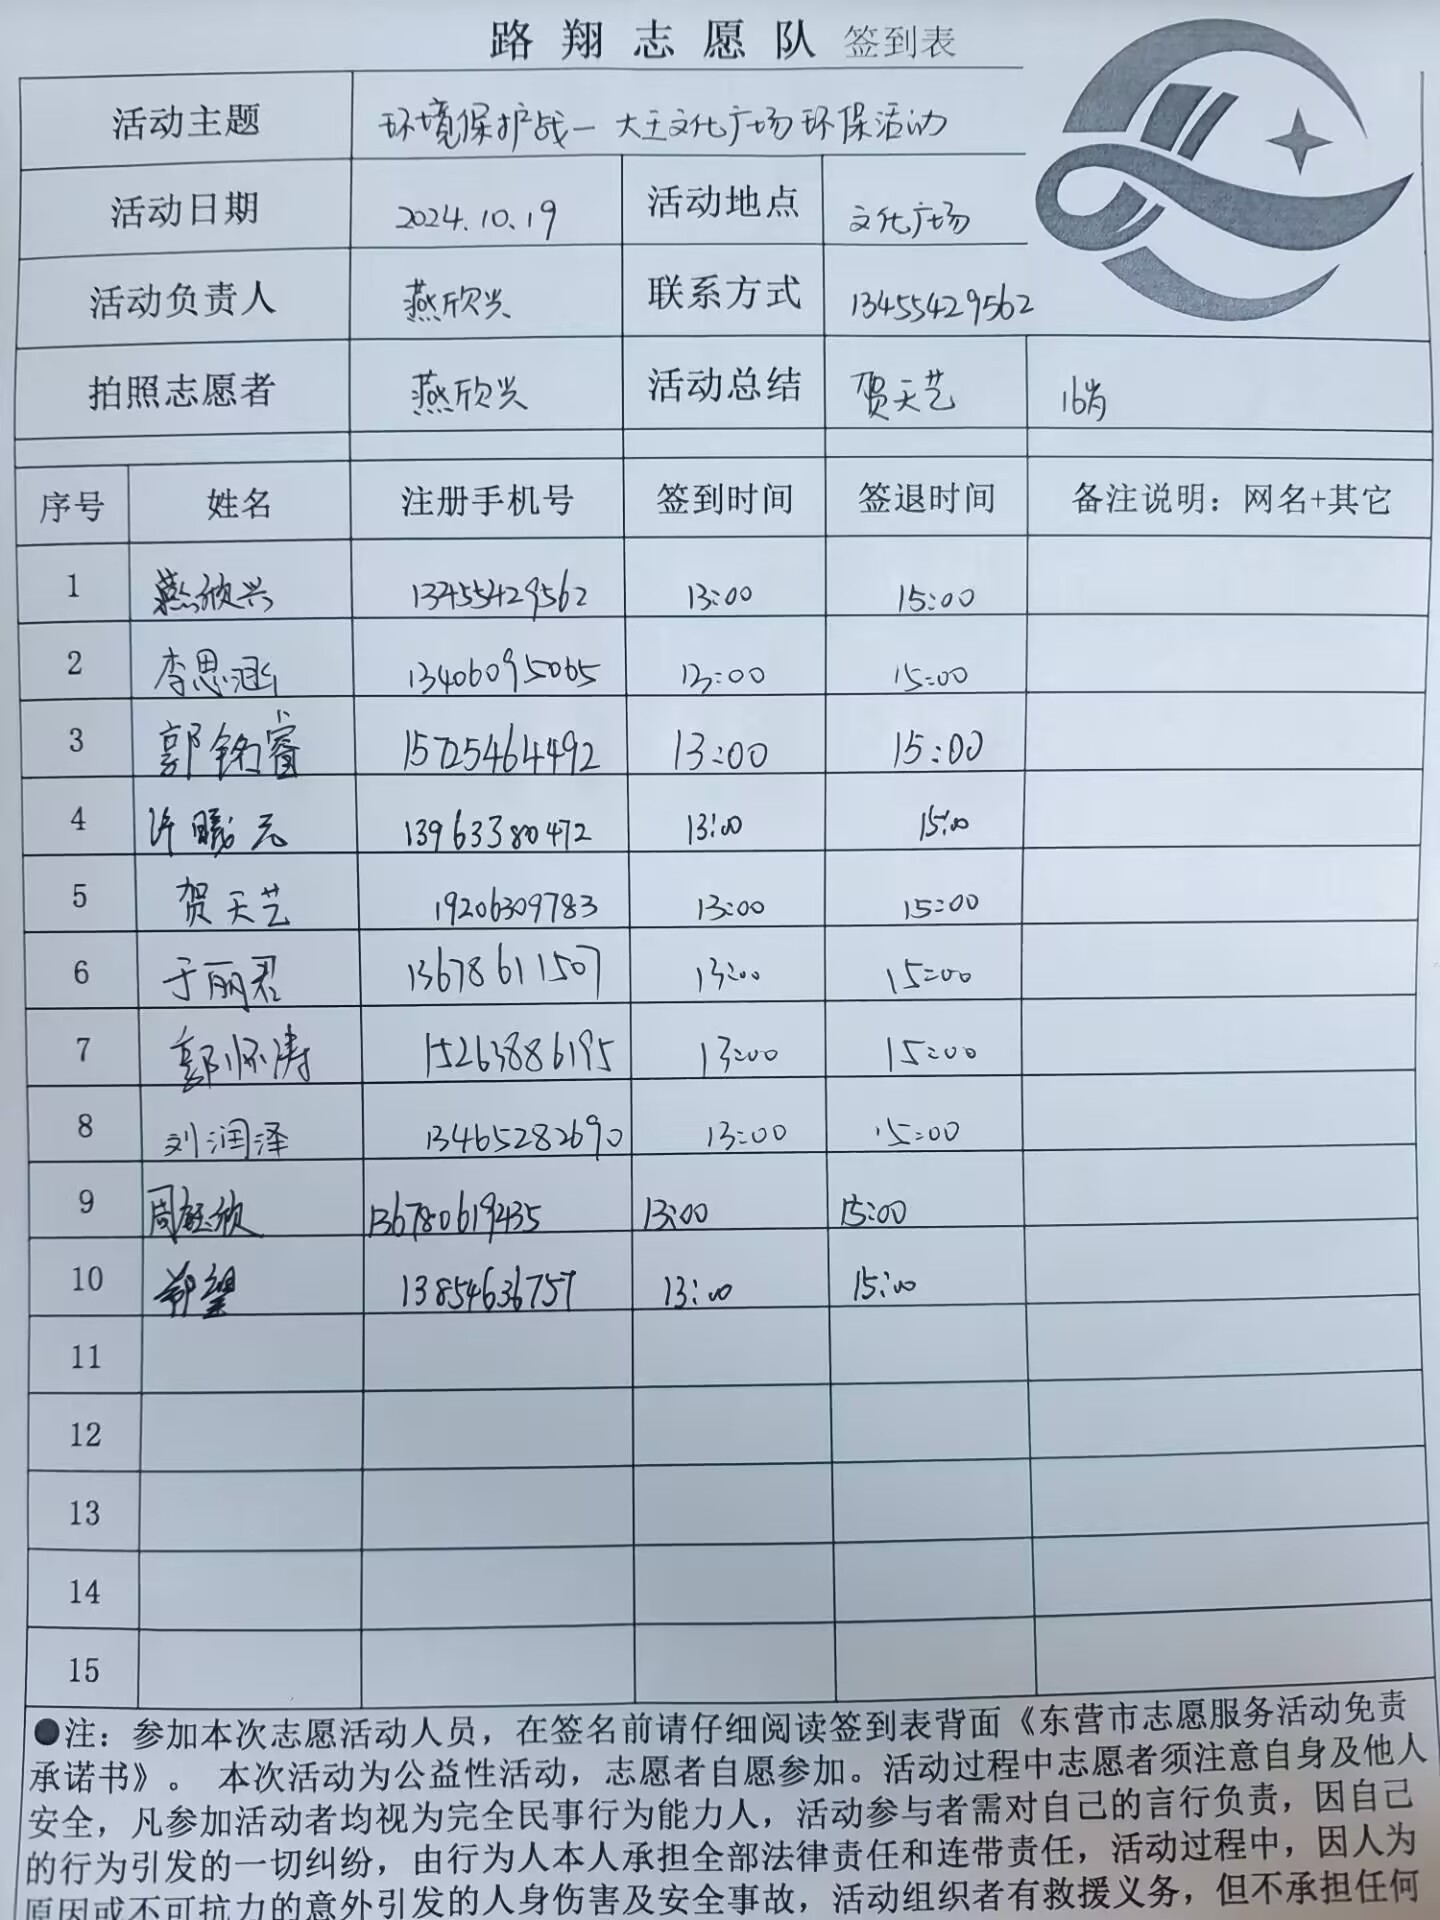 路翔志愿队 签到表
活动主题 环境保护战一大王文化广场环保活动
活动日期 2024.10.19 活动地点 文化广场
活动负责人 燕欣兴 联系方式 13455429562
拍照志愿者 燕欣兴 活动总结 贺天艺 16岁
序号 姓名 注册手机号 签到时间 签退时间 备注说明：网名+其它
1 燕欣兴 13455429562 13:00 15:00
2 李思涵 13406095065 13:00 15:00
3 郭铭睿 15725464492 13:00 15:00
4 许曦元 13963380472 13:00 15:00
5 贺天艺 19206309783 13:00 15:00
6 于丽君 13678611507 13:00 15:00
7 郭怀涛 15263886195 13:00 15:00
8 刘润泽 13465282690 13:00 15:00
9 周钰欣 136780619435 13:00 15:00
10 望 13854636757 13:00 15:00
11
12
13
14
15
●注：参加本次志愿活动人员，在签名前请仔细阅读签到表背面《东营市志愿服务活动免责
承诺书》。 本次活动为公益性活动，志愿者自愿参加。活动过程中志愿者须注意自身及他人
安全，凡参加活动者均视为完全民事行为能力人，活动参与者需对自己的言行负责，因自己
的行为引发的一切纠纷，由行为人本人承担全部法律责任和连带责任，活动过程中，因人为
原因或不可抗力的意外引发的人身伤害及安全事故，活动组织者有救援义务，但不承担任何